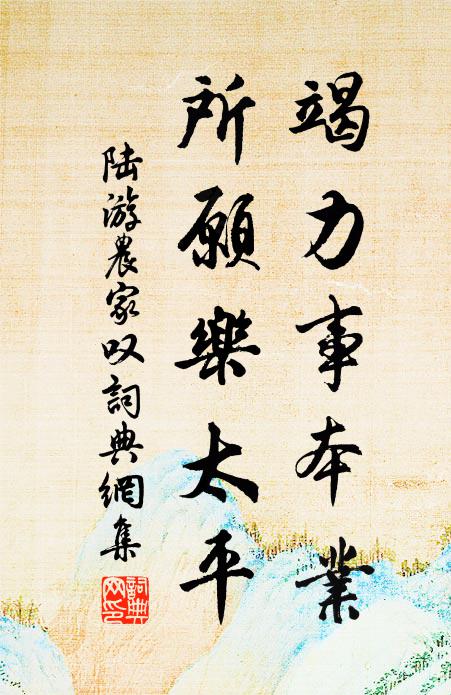 竭力事本業
所願樂太平
陸游農家叹詞典網集
詞典网印